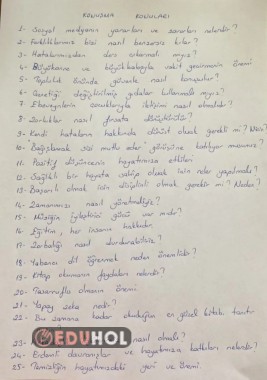 KONUŞMA KONULARI
1- Sosyal medyanın yararları ve zararları nelerdir?
2- Farklılıklarımız bizi nasıl benzersiz kılar?
3- Hatalarımızdan ders çıkarmalı mıyız?
4- Büyüklerine ve büyükbabayla vakit geçirmenin önemi
5- Topluluk önünde güvenle nasıl konuşulur?
6- Genetiği değiştirilmiş gıdaları kullanmalı mıyız?
7- Ebeveynlerin çocuklarıyla iletişimi nasıl olmalıdır?
8- Zorluklar nasıl fırsata dönüştürülür?
9- Kendi hataların hakkında dürüst olmak gerekli mi? Niçin?
10- Bağışlamak sizi mutlu eder görüşüne katılıyor musunuz?
11- Pozitif düşüncenin hayatımıza etkileri
12- Sağlıklı bir hayata sahip olmak için neler yapılmalı?
13- Başarılı olmak için disiplinli olmak gerekir mi? Neden?
14- Zamanımızı nasıl yönetmeliyiz?
15- Müziğin iyileştirici gücü var mıdır?
16- Eğitim, her insanın hakkıdır.
17- Zorbalığı nasıl durdurabiliriz?
18- Yabancı dil öğrenmek neden önemlidir?
19- Kitap okumanın faydaları nelerdir?
20- Tasarruflu olmanın önemi.
21- Yapay zeka nedir?
22- Bu zamana kadar okuduğun en güzel kitabı tanıt
23- nasıl olmalı?
24- Erdemli davranışlar ve hayatımıza katkıları nelerdir?
25- Temizliğin hayatımızdaki yeri ve önemi.
EDUHOL